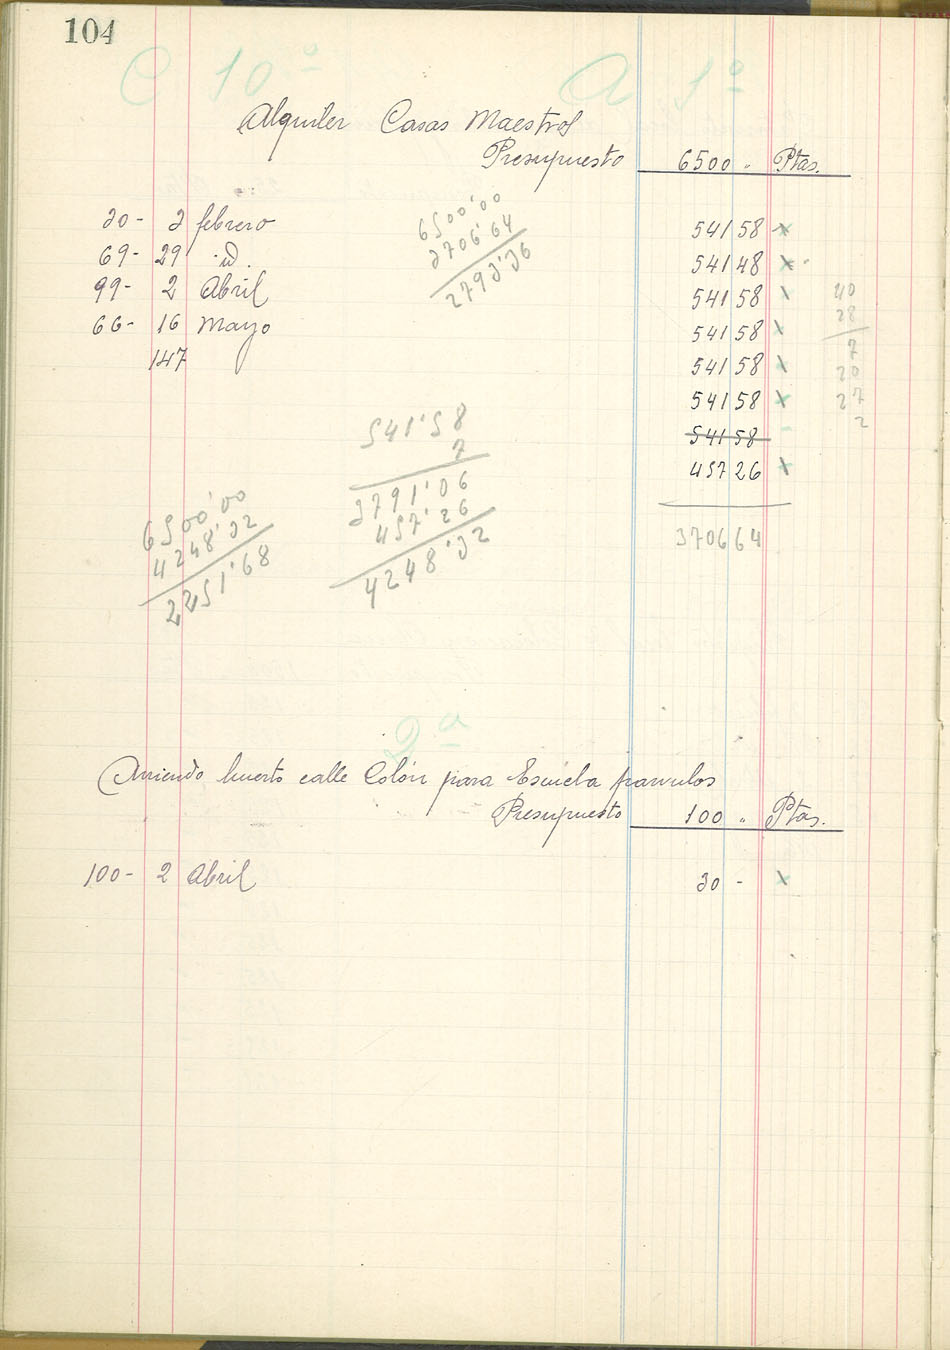 104
C 10ª A 1º
Alquiler Casas Maestros
Presupuesto 6500 " Ptas.
30- 3 febrero 541 58 x
69- 29 id. 541 48 x
99- 2 Abril 541 58 x
66- 16 Mayo 541 58 x
147 541 58 x
541 58 x
541 58 -
457 26 x
3706 64
6500'00
3706'64
2793'36
40
28
7
20
27
2
541'58
7
3791'06
457'26
4248'32
6500'00
4248'32
2251'68
2ª
Arriendo huerto calle Colón para Escuela parvulos
Presupuesto 100 " Ptas.
100- 2 Abril 30 - x